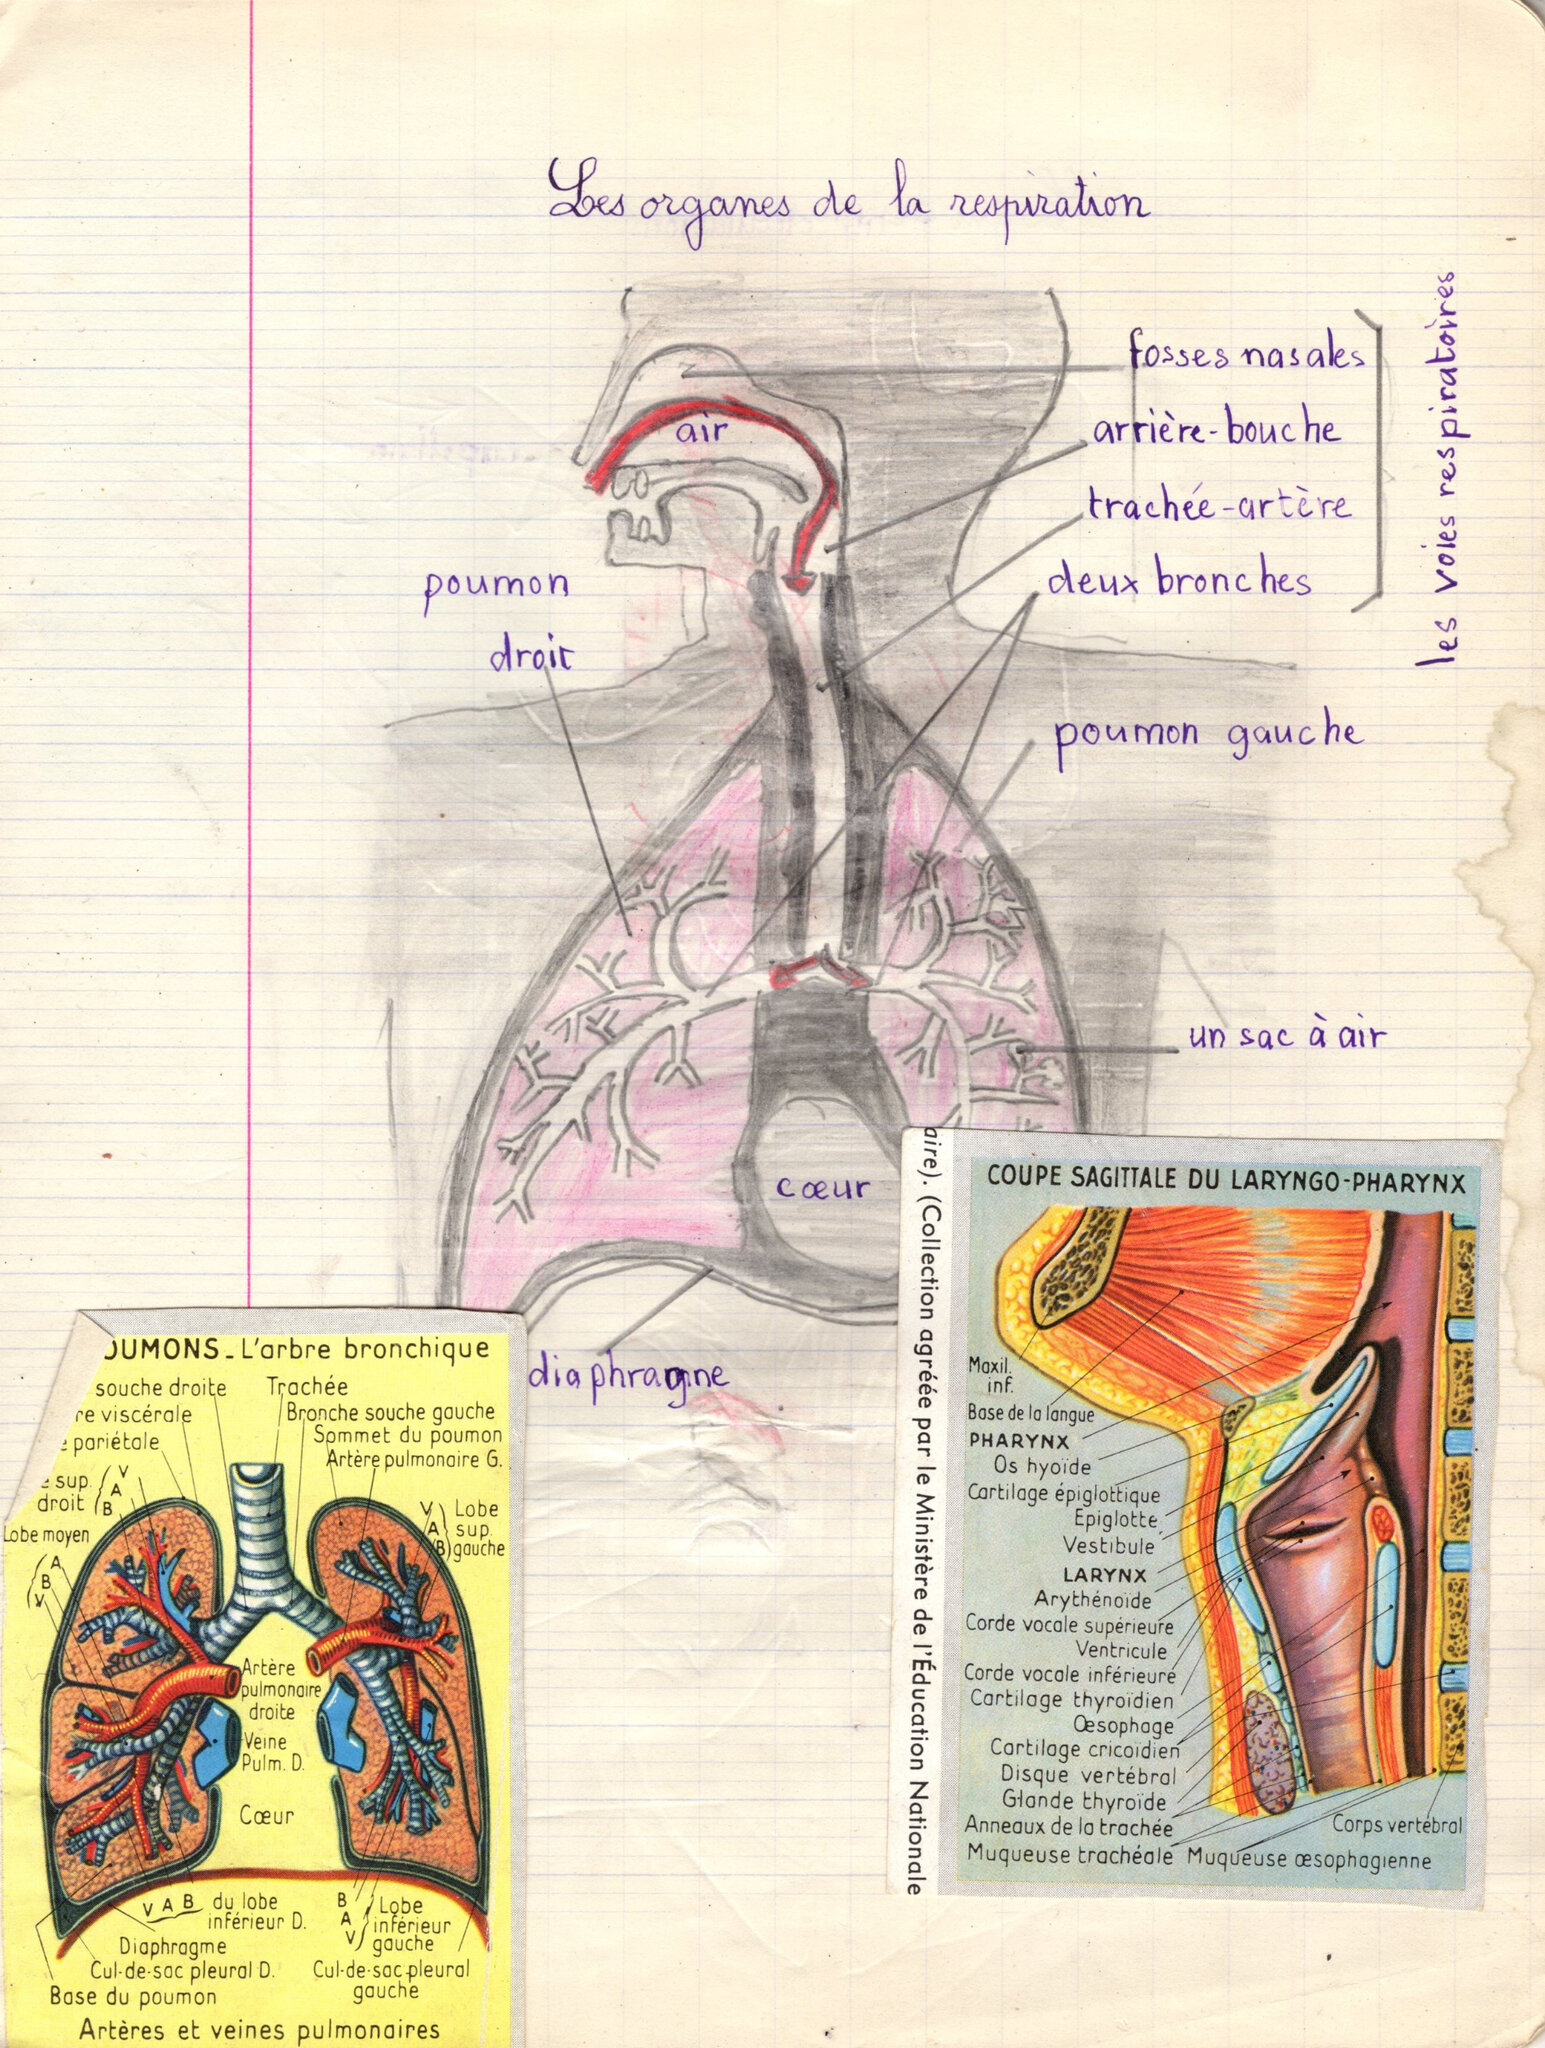 Les organes de la respiration
fosses nasales
arrière-bouche
trachée-artère
deux bronches
les voies respiratoires
air
poumon
droit
poumon gauche
un sac à air
cœur
diaphragne
OUMONS_L'arbre bronchique
souche droite
Trachée
re viscérale
Bronche souche gauche
e pariétale
Sommet du poumon
Artère pulmonaire G.
e sup.
droit
V
A
B
Lobe moyen
A
B
V
V
A
B
Lobe
sup.
gauche
Artère
pulmonaire
droite
Veine
Pulm. D.
Cœur
V A B du lobe
inférieur D.
B
A
V
Lobe
inférieur
gauche
Diaphragme
Cul-de-sac pleural D.
Cul-de-sac pleural
gauche
Base du poumon
Artères et veines pulmonaires
aire). (Collection agréée par le Ministère de l'Éducation Nationale
COUPE SAGITTALE DU LARYNGO-PHARYNX
Maxil.
inf.
Base de la langue
PHARYNX
Os hyoïde
Cartilage épiglottique
Epiglotte
Vestibule
LARYNX
Arythénoïde
Corde vocale supérieure
Ventricule
Corde vocale inférieure
Cartilage thyroïdien
Œsophage
Cartilage cricoïdien
Disque vertébral
Glande thyroïde
Anneaux de la trachée
Corps vertébral
Muqueuse trachéale Muqueuse œsophagienne